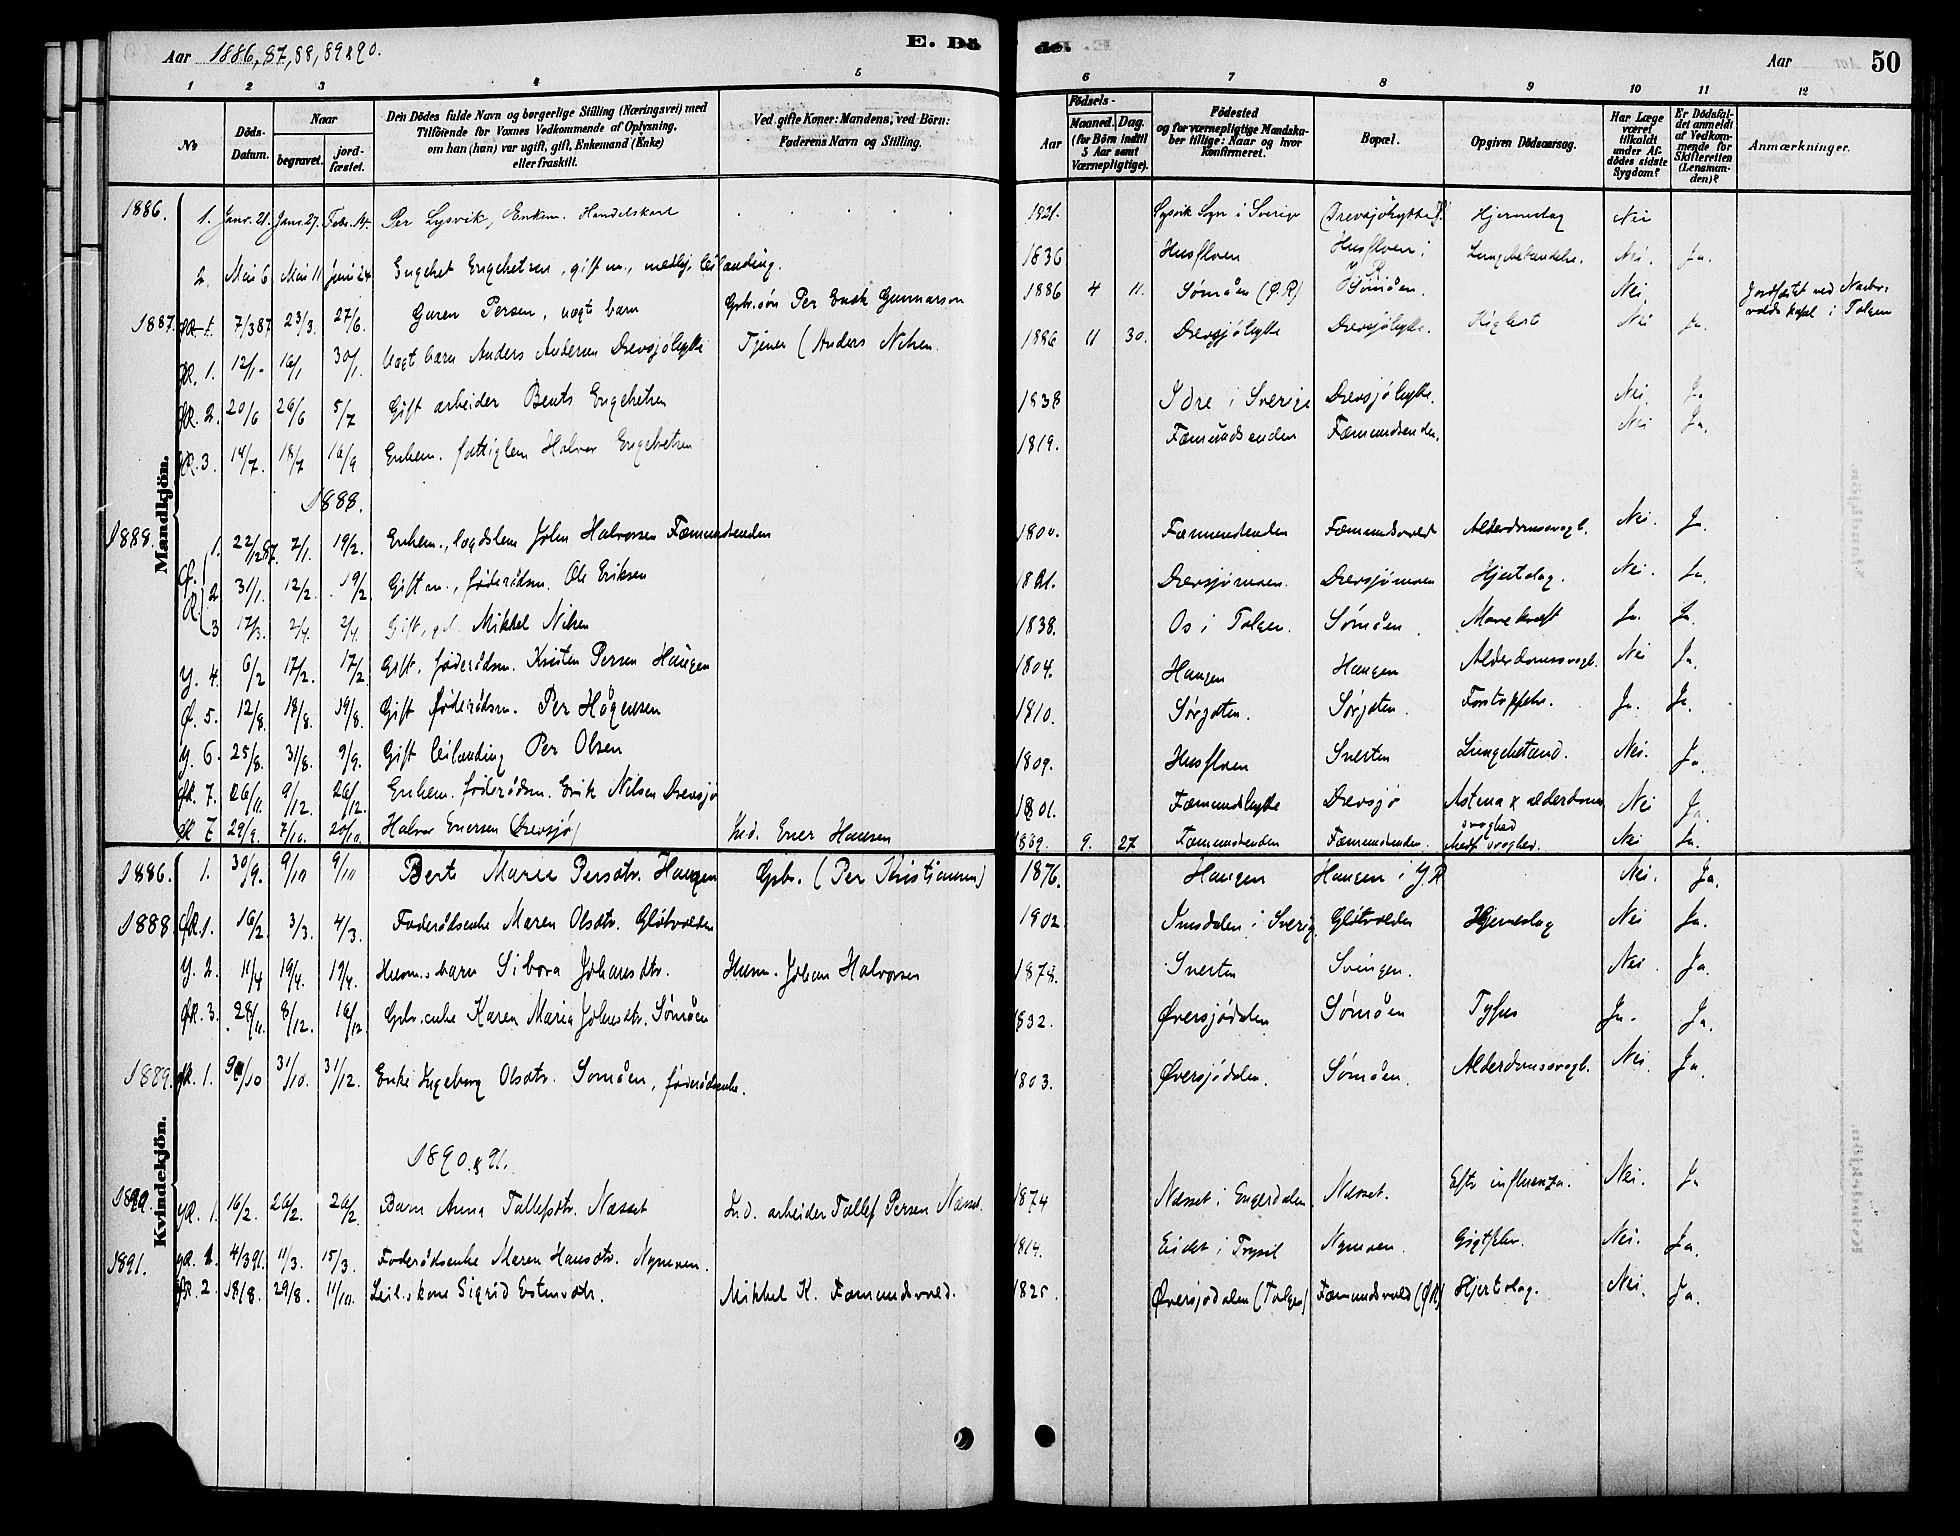 Aar 1886, 87, 88, 89 & 90.
E. Dö
de.
Aar
50
1 2 3 4 5 6 7 8 9 10 11 12
No
Döds-Datum.
Naar
begravet.
jord-fæstet.
Den Dödes fulde Navn og borgerlige Stilling (Næringsvei) med
Tilföiende for Voxnes Vedkommende af Oplysning,
om han (hun) var ugift, gift, Enkemand (Enke)
eller fraskilt.
Ved gifte Koner: Mandens, ved Börn:
Faderens Navn og Stilling.
Födsels-
Aar
Maaned. Dag.
(for Börn indtil
5 Aar samt
Værnepligtige).
Födested
og for værnepligtige Mandska-
ber tillige: Naar og hvor
Konfirmeret.
Bopæl.
Opgiven Dödsaarsag.
Har Læge
været
tilkaldt
under Af-
dödes sidste
Sygdom?
Er Dödsfal-
det anmeldt
af Vedkom-
mende for
Skifteretten
(Lensman-
den)?
Anmærkninger.
Mandkjön.
1886. 1. Janr. 21. Janr. 27. Febr. 14. Per Lysvik, Enkem. Handelskarl 1821. Lysvik Sogn i Sverige Drevsjöhytte Hjerneslag Nei
2. Mai 6 Mai 11 Juni 24 Engebret Engebretsen, gift m., leilænding. 1836 Husfloen Husfloen i Lungebetændelse. Nei. Ja.
1887. 1. 7/3 87 23/3. 27/6. Persen, uægt barn Gbr.søn Per Gunnarson 1886 4 11. Sømåen (Ø.R) Sømåen. Nei. Jordfæstet ved
i Tolgen
ØR. 1. 12/1. 16/1 30/1. Uægt barn Anders Andersen Drevsjöhytte Tjener (Anders Nilsen 1886 11 30. Drevsjöhytte Drevsjöhytte. Nei Ja.
ØR. 2. 20/6 26/6 5/7 Gift arbeider Bent Engebretsen 1838 Idre i Sverige Drevsjöhytte. Nei. Ja
ØR. 3. 14/7. 18/7 16/9 Enkem. fattiglem Halvor Engebretsen 1819. Fæmundsenden Fæmundsenden. Nei Ja.
1888.
1888. 1. 22/12 87. 7/1. 19/2. Enkem., lægdslem John Halvorsen Fæmundsenden 1800. Fæmundsenden Fæmundsvold Alderdomssvagh. Nei. Ja.
Ø.R. 2 31/1. 12/2. 19/2 Gift m., føderådsm. Ole Eriksen 1821. Drevsjömoen. Drevsjömoen Hjerteslag. Nei. Ja.
3 17/3. 2/4. 2/4. Gift, Mikkel Nilsen 1838. Os i Tolgen. Sømåen. Mavekræft Ja. Ja.
Y. 4. 6/2 17/2. 17/2. Gift, føderådsm. Kristen Persen Haugen 1804. Haugen Haugen Alderdomssvagh. Nei Ja.
Ø. 5. 12/8. 18/8. 19/8. Gift føderådsm. Per Hågensen 1810. Sørgåten. Sørgåten. Forstoppelse. Ja. Ja.
Y. 6. 25/8. 31/8. 9/9. Gift leilænding Per Olsen 1809. Husfloen Snerten Lungebetænd. Nei. Ja.
ØR. 7. 26/11. 9/12. 26/12. Enkem. føderådsm. Erik Nilsen Drevsjø 1801. Fæmundshytte Drevsjø Astma & alderdoms
svaghed Nei Ja.
ØR 7. 29/9. 7/10. 20/10. Halvor Enersen (Drevsjø) Ind. Ener Hansen 1889. 9. 27 Fæmundsenden Fæmundsenden. Medf. svaghed. Nei Ja.
Kvindekjön.
1886. 1. 30/9. 9/10 9/10 Berte Maria Persdtr. Haugen Gbr. (Per Kristiansen) 1876. Haugen Haugen i Y.R Nei. Ja.
1888. ØR. 1. 16/2. 3/3. 4/3. Føderådsenke Maren Olsdtr. Gløtvolden 1802. i Sverig. Gløtvolden Hjerneslag Nei Ja.
Y. 2. 11/4 19/4. 19/4. Husm.s barn Johansdtr. Husm. Johan Halvorsen 1878. Snerten Svingen. Nei. Ja.
ØR. 3. 28/11. 8/12. 16/12. Gbr.enke Karen Maria Johnsdtr. Sømåen 1832. Øversjödalen Sømåen Tyfus Ja. Ja.
1889. ØR. 1. /10 31/10. 31/12. Enke Ingeborg Olsdtr. Sømåen, føderådsenke. 1803. Øversjödalen. Sømåen. Alderdomssvagh. Nei. Ja.
1890. & 91.
1890. YR. 1. 16/2. 26/2. 26/2. Barn Anna Tollefsdtr. Næsset Ind. arbeider Tollef Persen Næsset. 1874 Næsset i Engerdalen Næsset. Eftr influenza. Nei. Ja
1891. YR. 1. 4/3 91. 11/3. 15/3. Føderådsenke Maren Hansdtr. Nymoen. 1814. Eidet i Trysil Nymoen. Gigtfeber. Nei. Ja.
ØR. 2. 18/8. 29/8. 11/10. Leil.s kone Sigrid Estensdtr. Mikkel K. Fæmundsvold. 1825. Øversjödalen (Tolgen) Fæmundsvold (ØR) Hjerteslag. Nei. Ja.